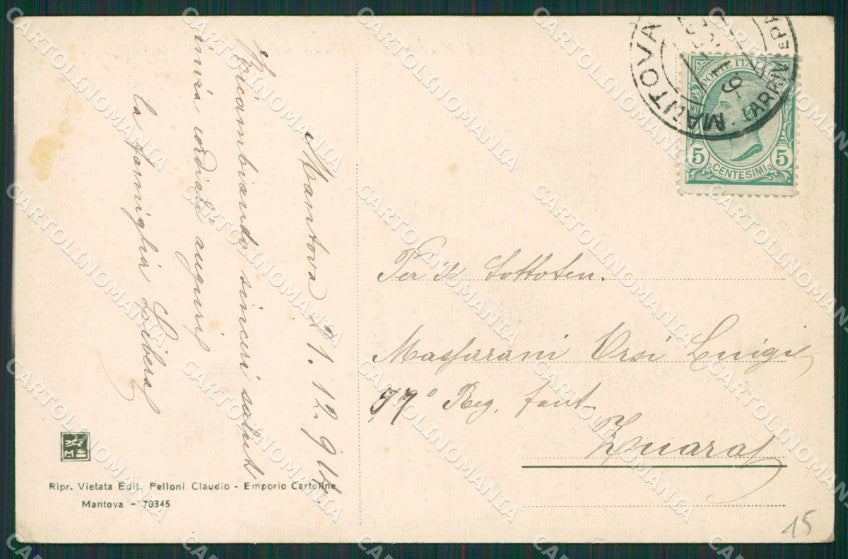 Mantova 21.12.914
Ricambiando sinceri saluti
invia cordiali auguri
la famiglia Liberal
MANTOVA
POSTE ITALIANE
5 5
CENTESIMI
Per il Sottoten.
Massarani Orsi Luigi
37º Reg. fant.
Zuara
Ripr. Vietata Edit. Pelloni Claudio - Emporio Cartoline
Mantova - 70345
15
CARTOLINOMANIA